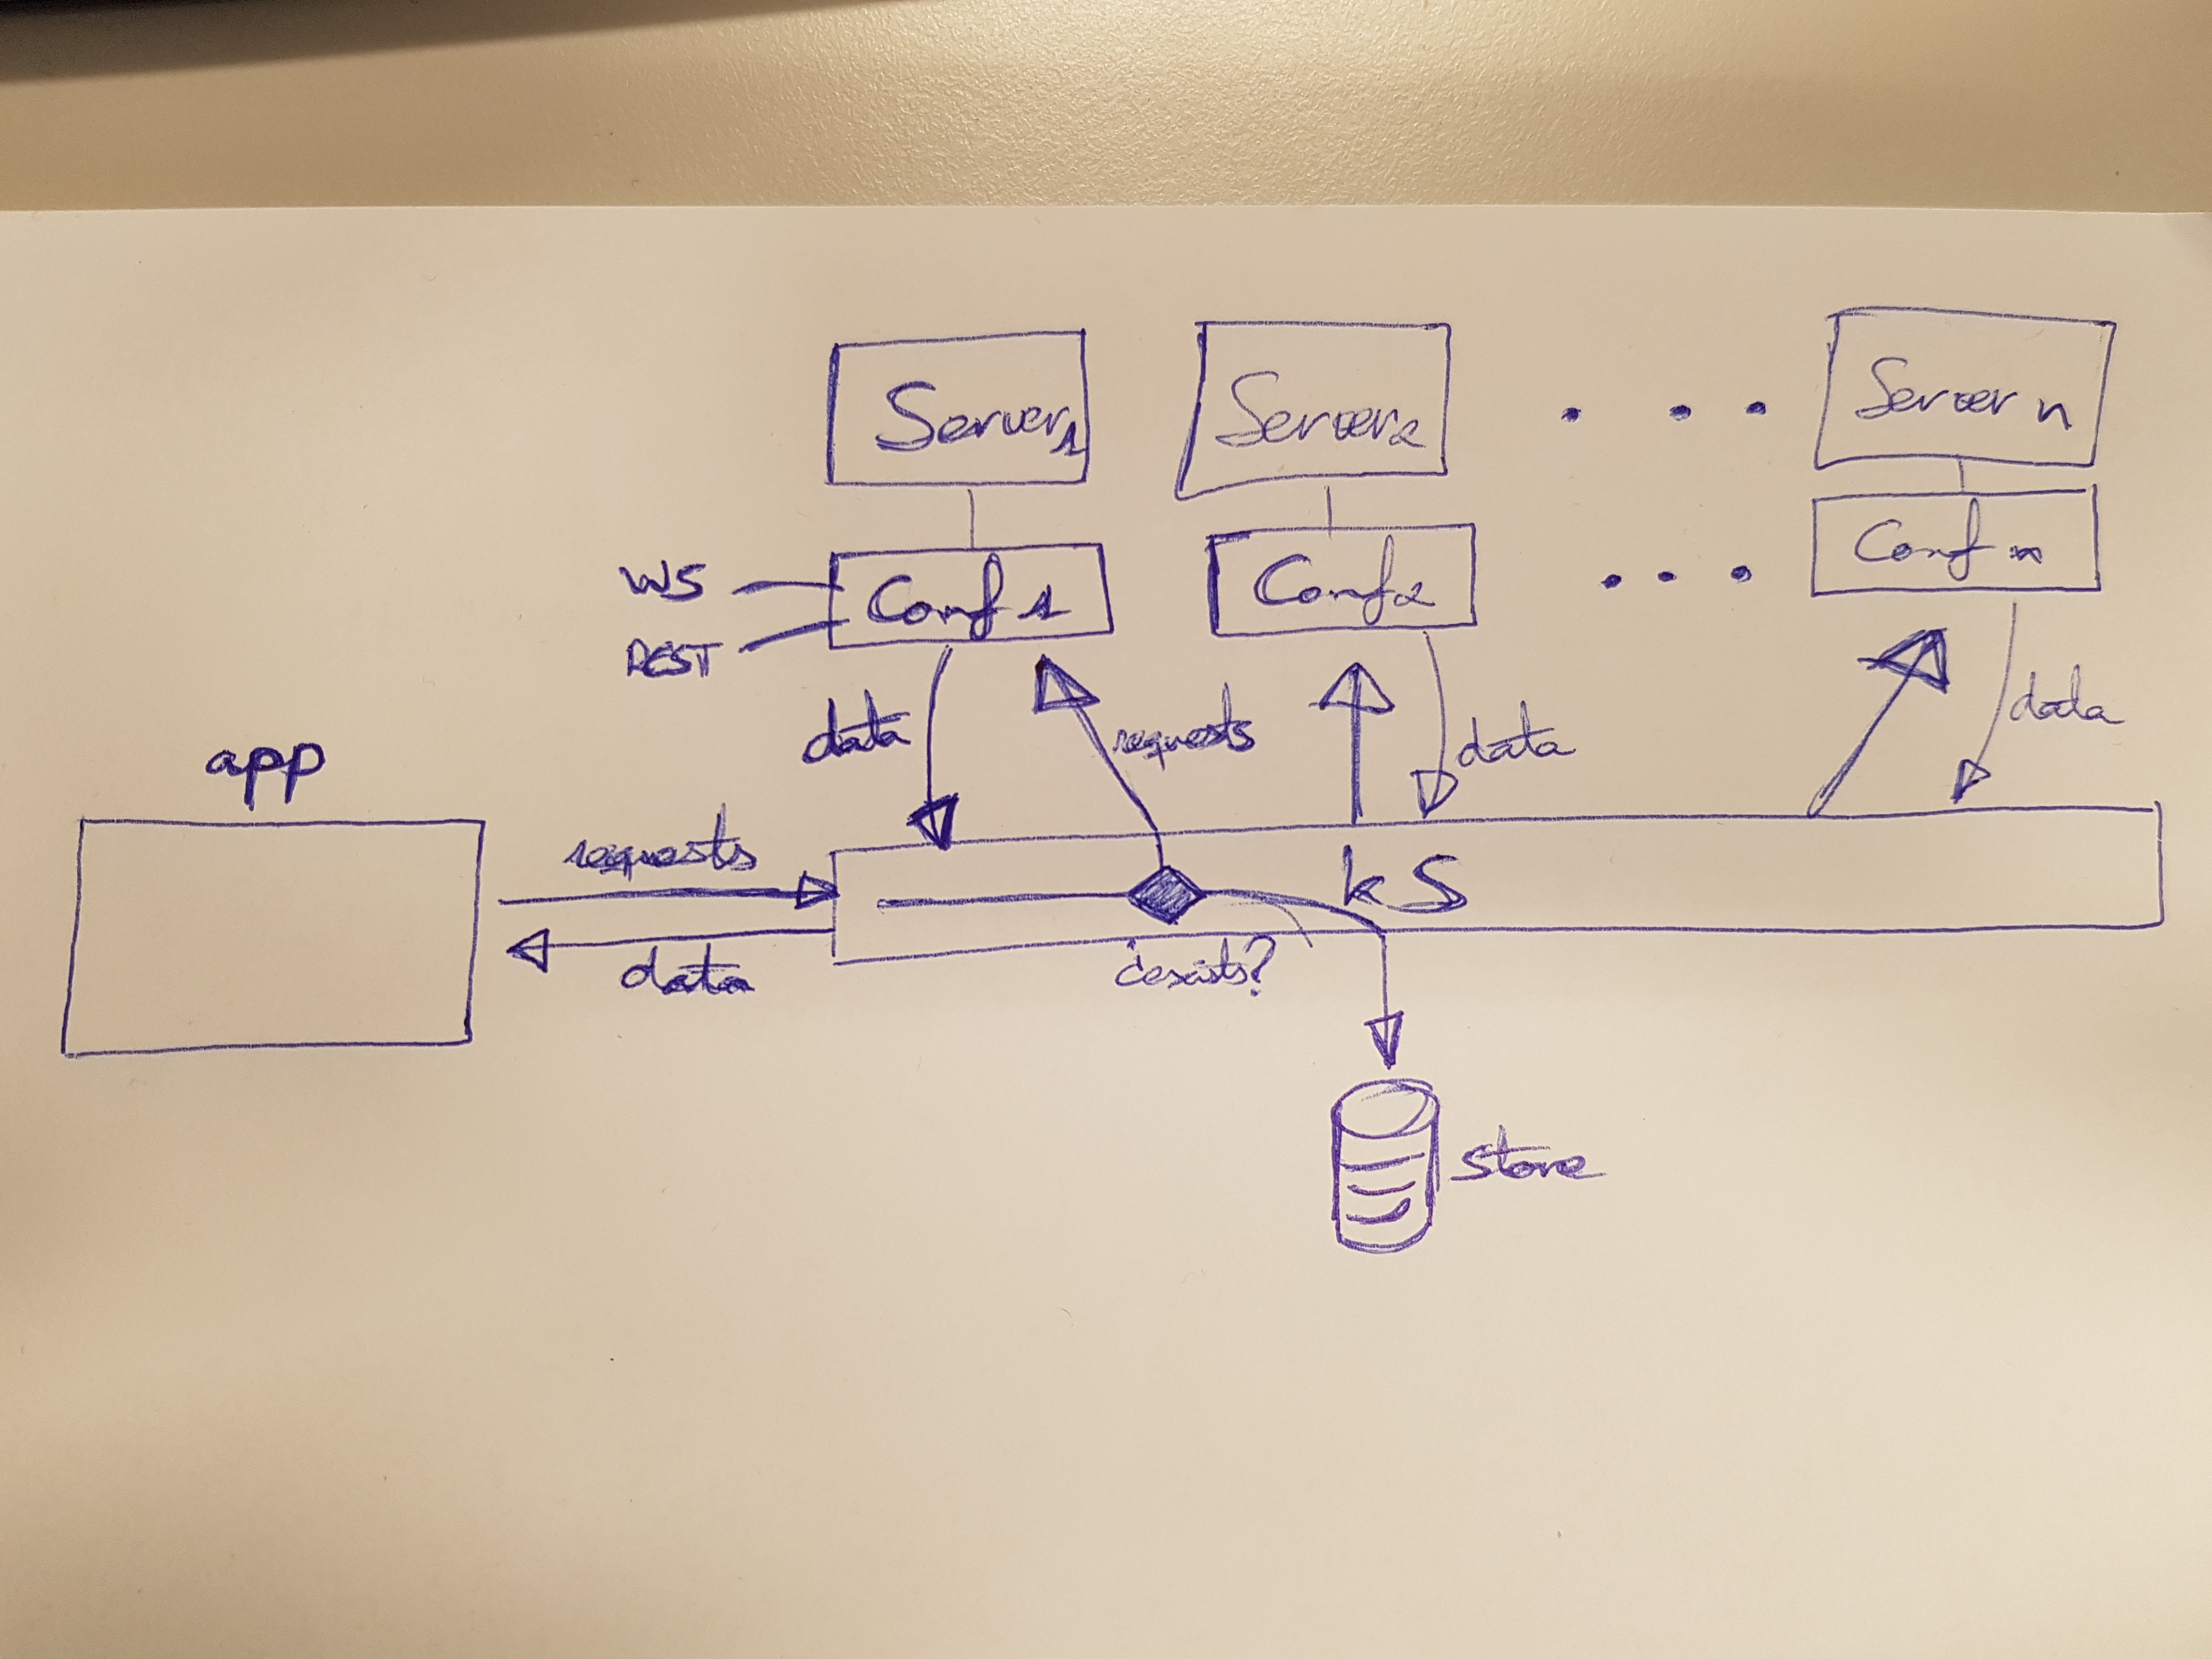 Server1
Server2
Server n
WS
REST
Conf 1
Conf2
Conf n
data
requests
data
data
app
requests
data
kS
¿exists?
store